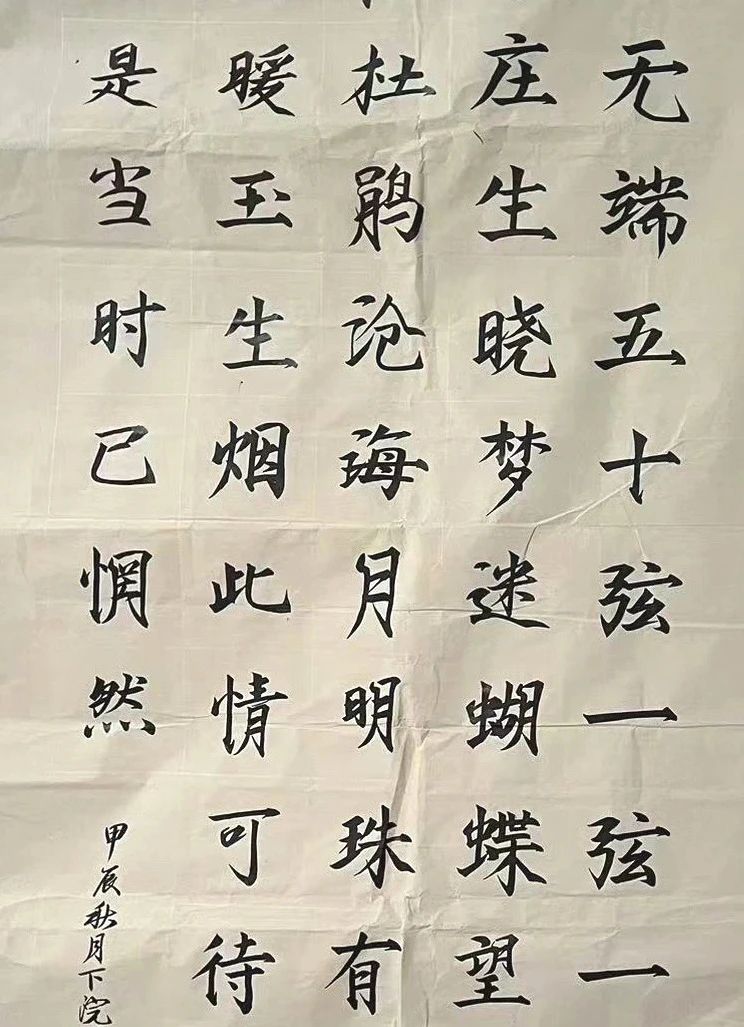 无端五十弦一弦一
庄生晓梦迷蝴蝶望
杜鹃沧海月明珠有
暖玉生烟此情可待
是当时已惘然
甲辰秋月下浣